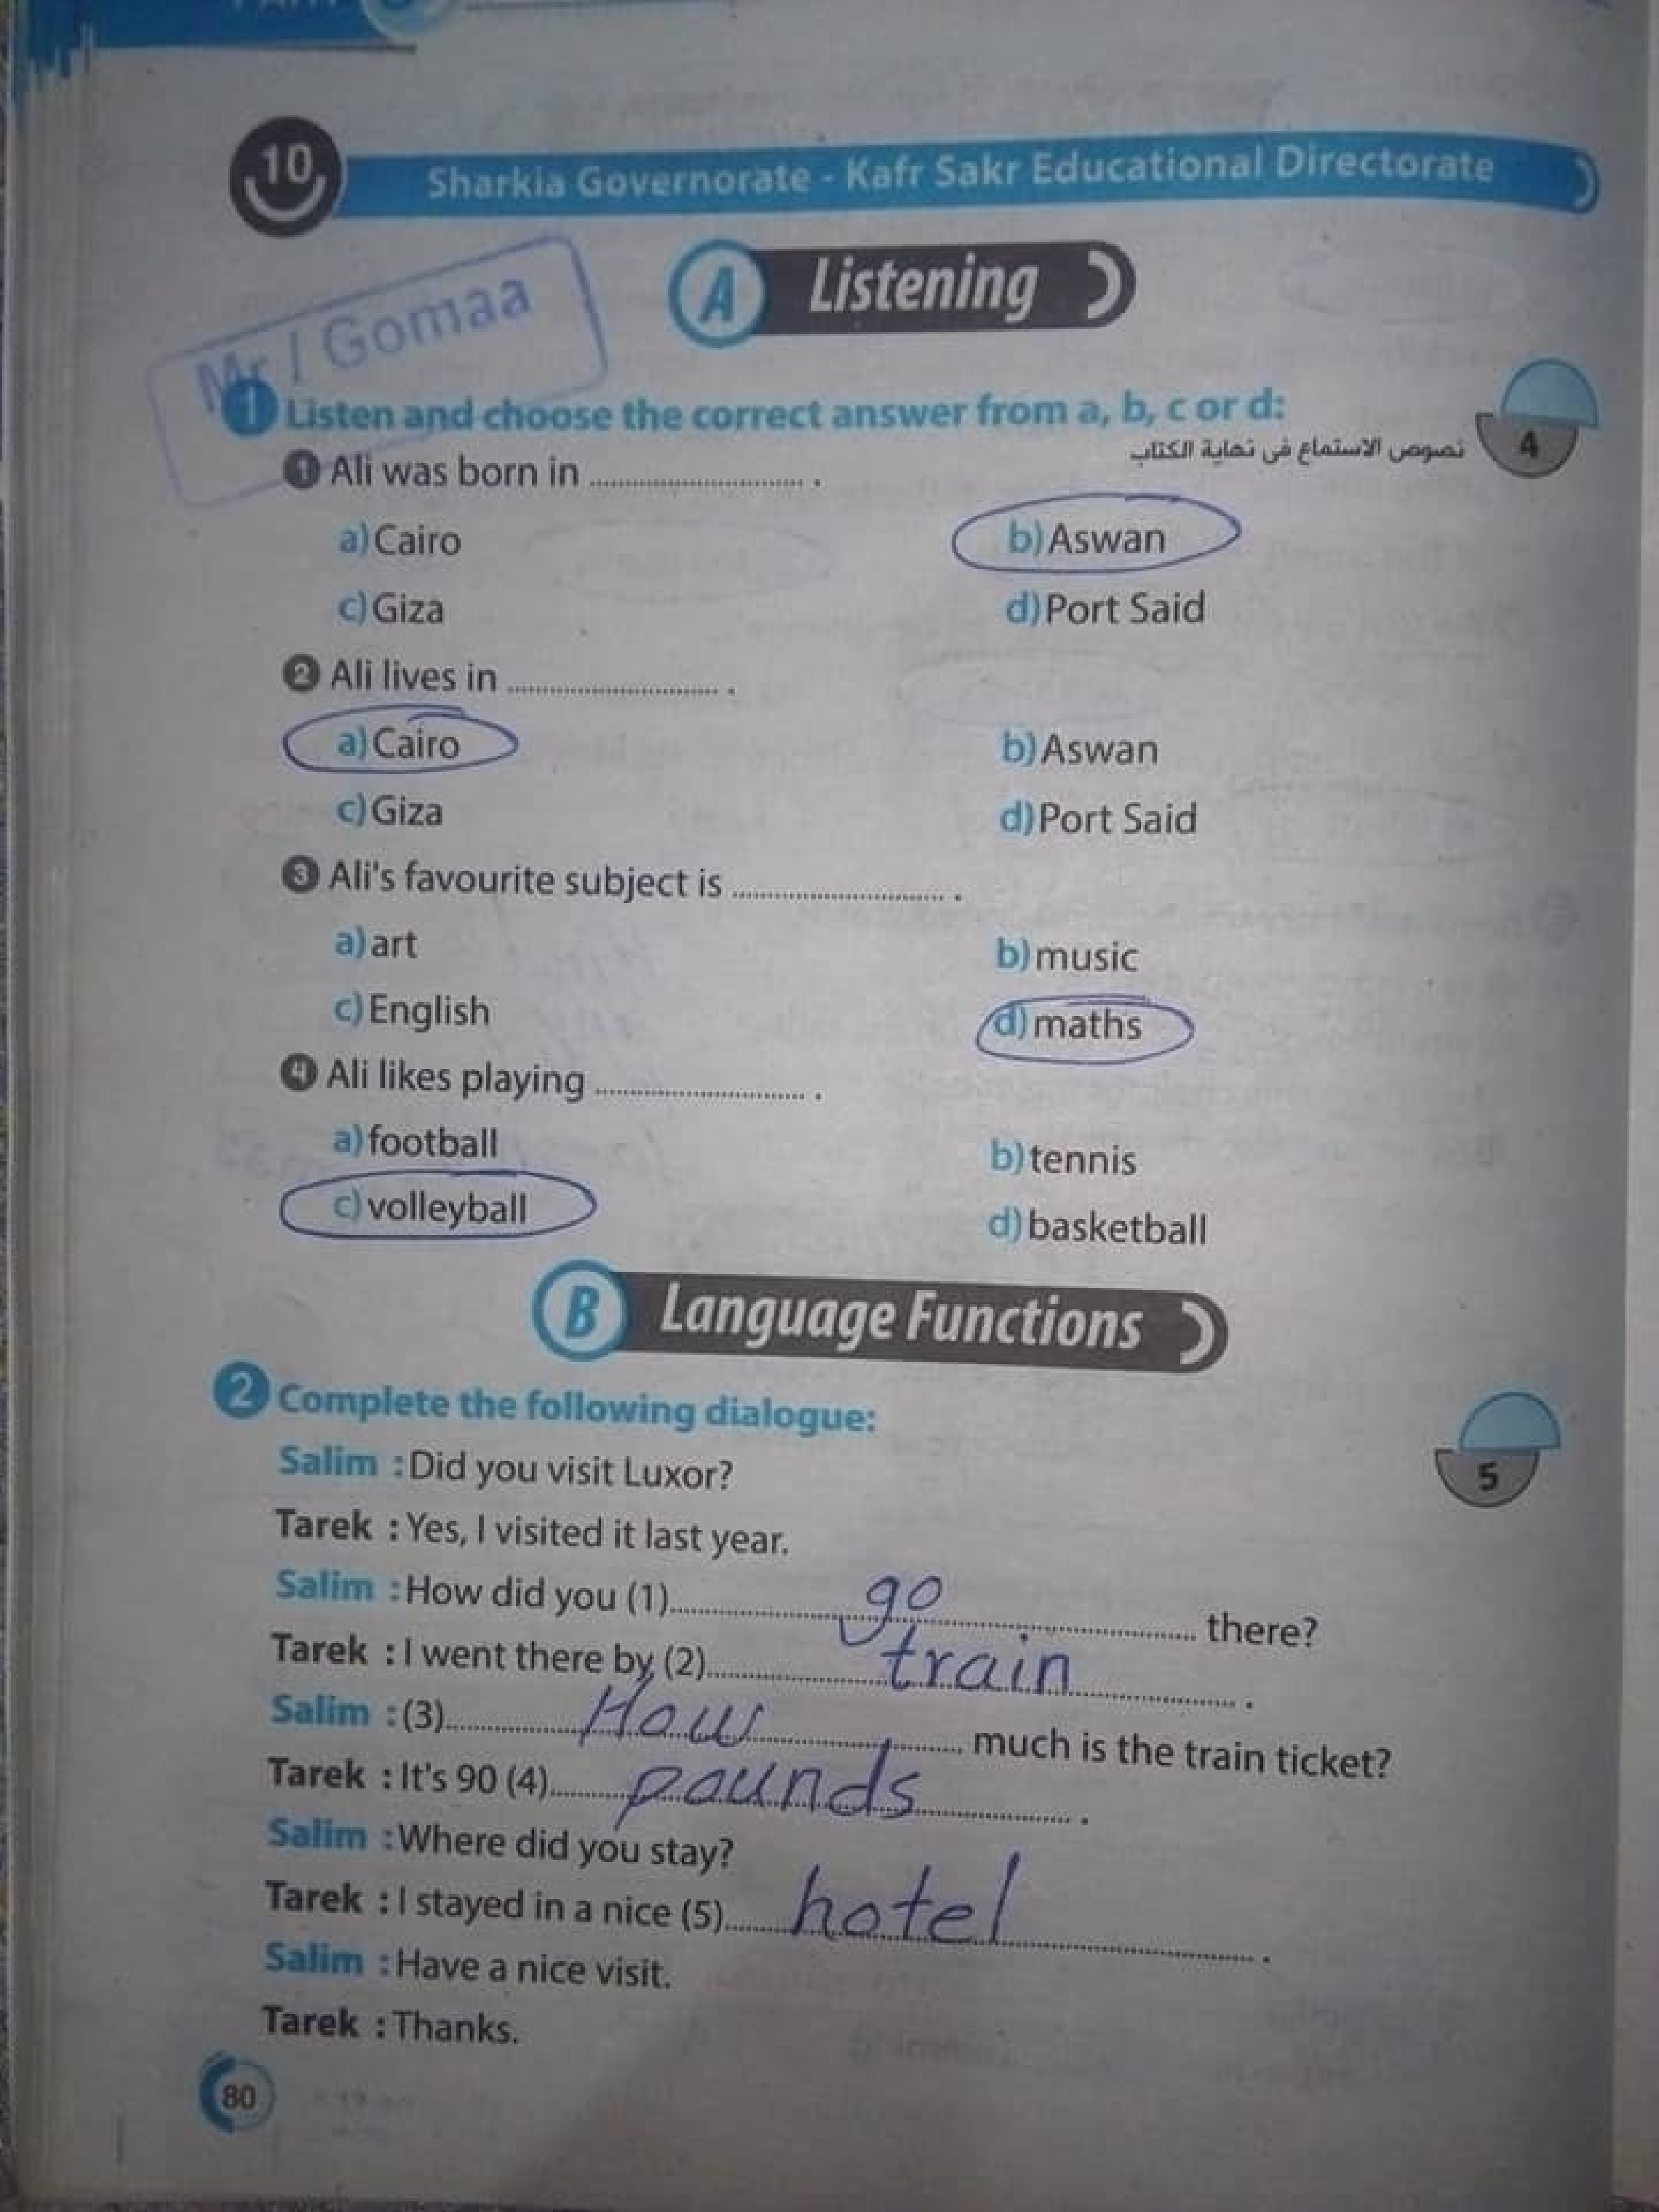 10 Sharkia Governorate - Kafr Sakr Educational Directorate
A Listening
Mr / Gomaa
1 Listen and choose the correct answer from a, b, c or d:
نصوص الاستماع فى نهاية الكتاب
4
1 Ali was born in .............................. .
a) Cairo b) Aswan
c) Giza d) Port Said
2 Ali lives in .............................. .
a) Cairo b) Aswan
c) Giza d) Port Said
3 Ali's favourite subject is .............................. .
a) art b) music
c) English d) maths
4 Ali likes playing .............................. .
a) football b) tennis
c) volleyball d) basketball
B Language Functions
2 Complete the following dialogue:
5
Salim : Did you visit Luxor?
Tarek : Yes, I visited it last year.
Salim : How did you (1) go there?
Tarek : I went there by (2) train .
Salim : (3) How much is the train ticket?
Tarek : It's 90 (4) pounds .
Salim : Where did you stay?
Tarek : I stayed in a nice (5) hotel .
Salim : Have a nice visit.
Tarek : Thanks.
80